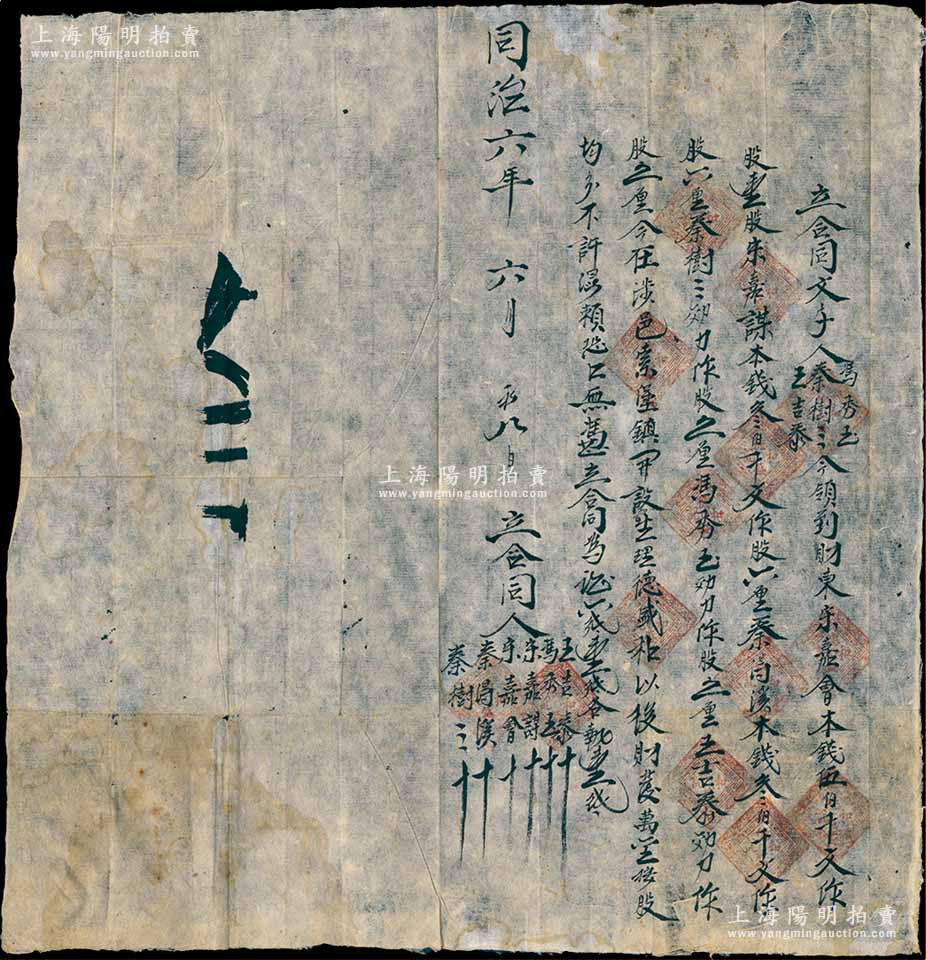 立合同文字人馮秀玉秦樹三王吉泰今領到財東宋嘉會本錢伍伯千文作
股壹股宋嘉謀本錢叁伯千文作股六厘秦尚溪本錢叁伯千文作
股六厘秦樹三効力作股之厘馮秀玉効力作股之厘王吉泰効力作
股之厘今在涉邑索堡鎮開設生理德盛和以後財發萬金按股
均分不許混賴恐口無憑立合同為証六紙各執壹紙
同治六年 六月 初八日 立合同人
王吉泰 十
馮秀玉 十
宋嘉謀 十
宋嘉會 十
秦尚溪 十
秦樹三 十
上海陽明拍賣
www.yangmingauction.com
上海陽明拍賣
www.yangmingauction.com
上海陽明拍賣
www.yangmingauction.com